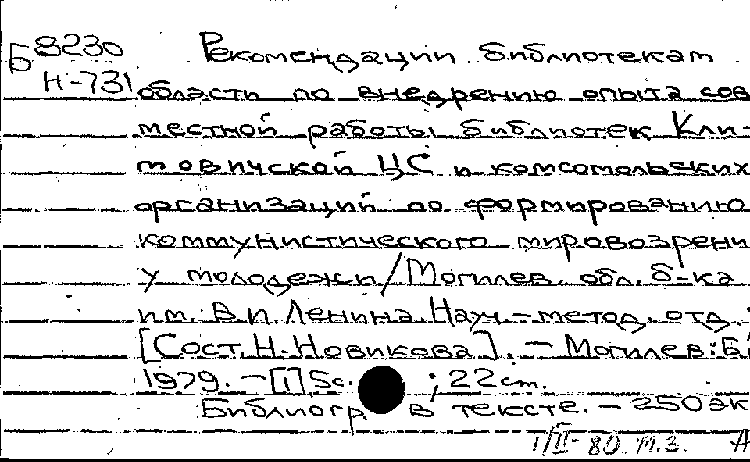 Б 8230 Рекомендации библиотекам
Н-731 области по внедрению опыта сов
местной работы библиотек Кли-
мовичской ЦС и комсомольских
организаций по формированию
коммунистического мировозрени
у молодежи/Могилев. обл. б-ка
им. В.И. Ленина. Науч.-метод. отд.
[Сост. Н. Новикова]. - Могилев: Б
1979. - [1] 5с. ; 22 cm.
Библиогр. в тексте. - 250 эк
1/II-80. М.З. А